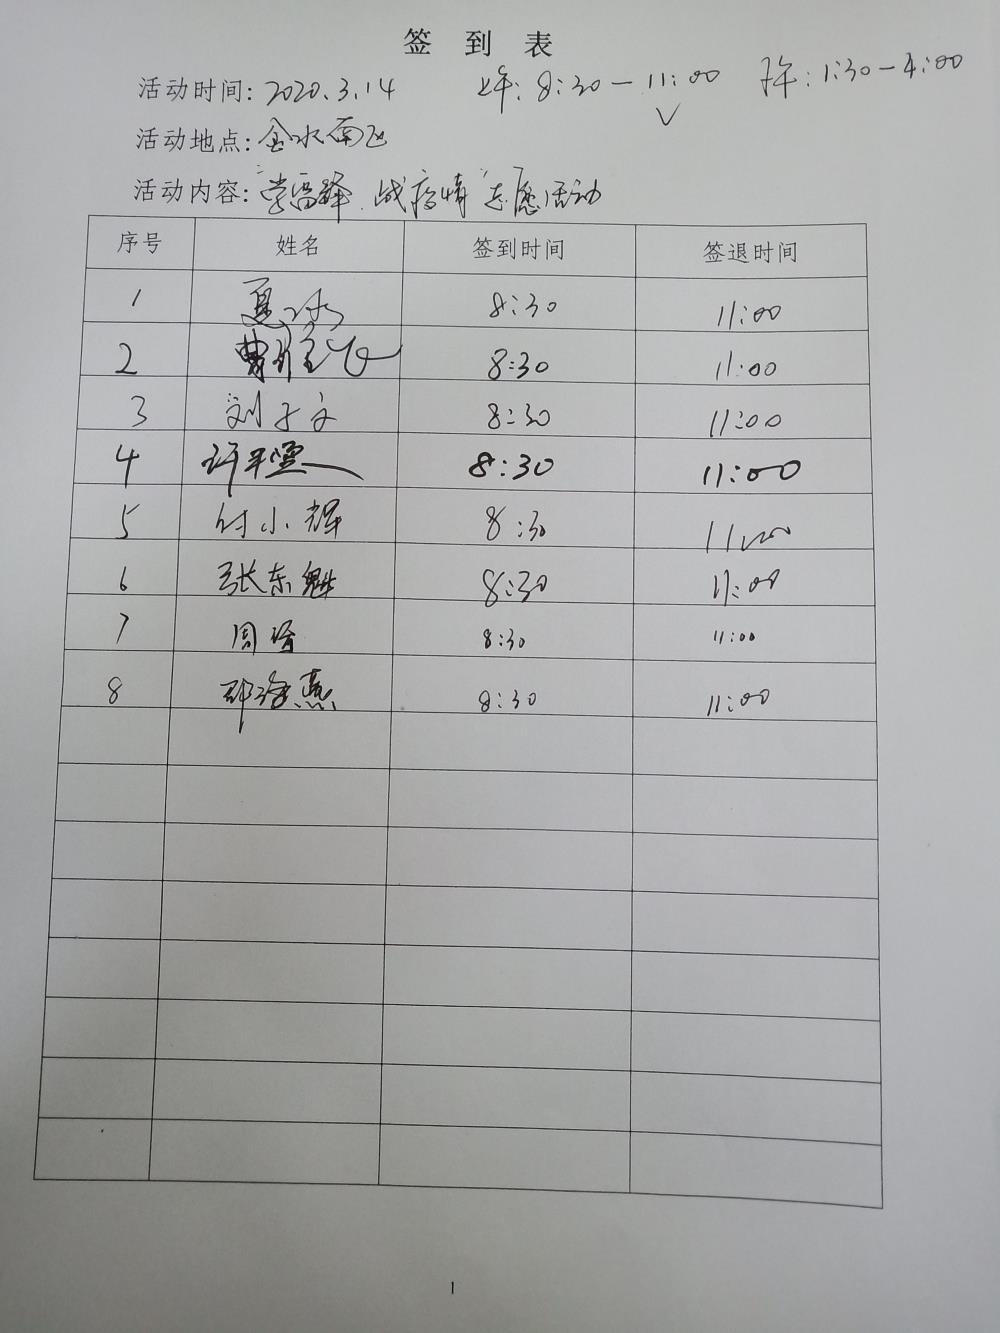 签到表
活动时间: 2020.3.14 上午: 8:30—11:00 下午: 1:30—4:00
√
活动地点: 金水南区
活动内容: "学雷锋 战疫情"志愿活动
序号 姓名 签到时间 签退时间
1 夏冰 8:30 11:00
2 曹 8:30 11:00
3 刘子文 8:30 11:00
4 许 8:30 11:00
5 付小辉 8:30 11:00
6 张东魁 8:30 11:00
7 周 8:30 11:00
8 邵海燕 8:30 11:00
1